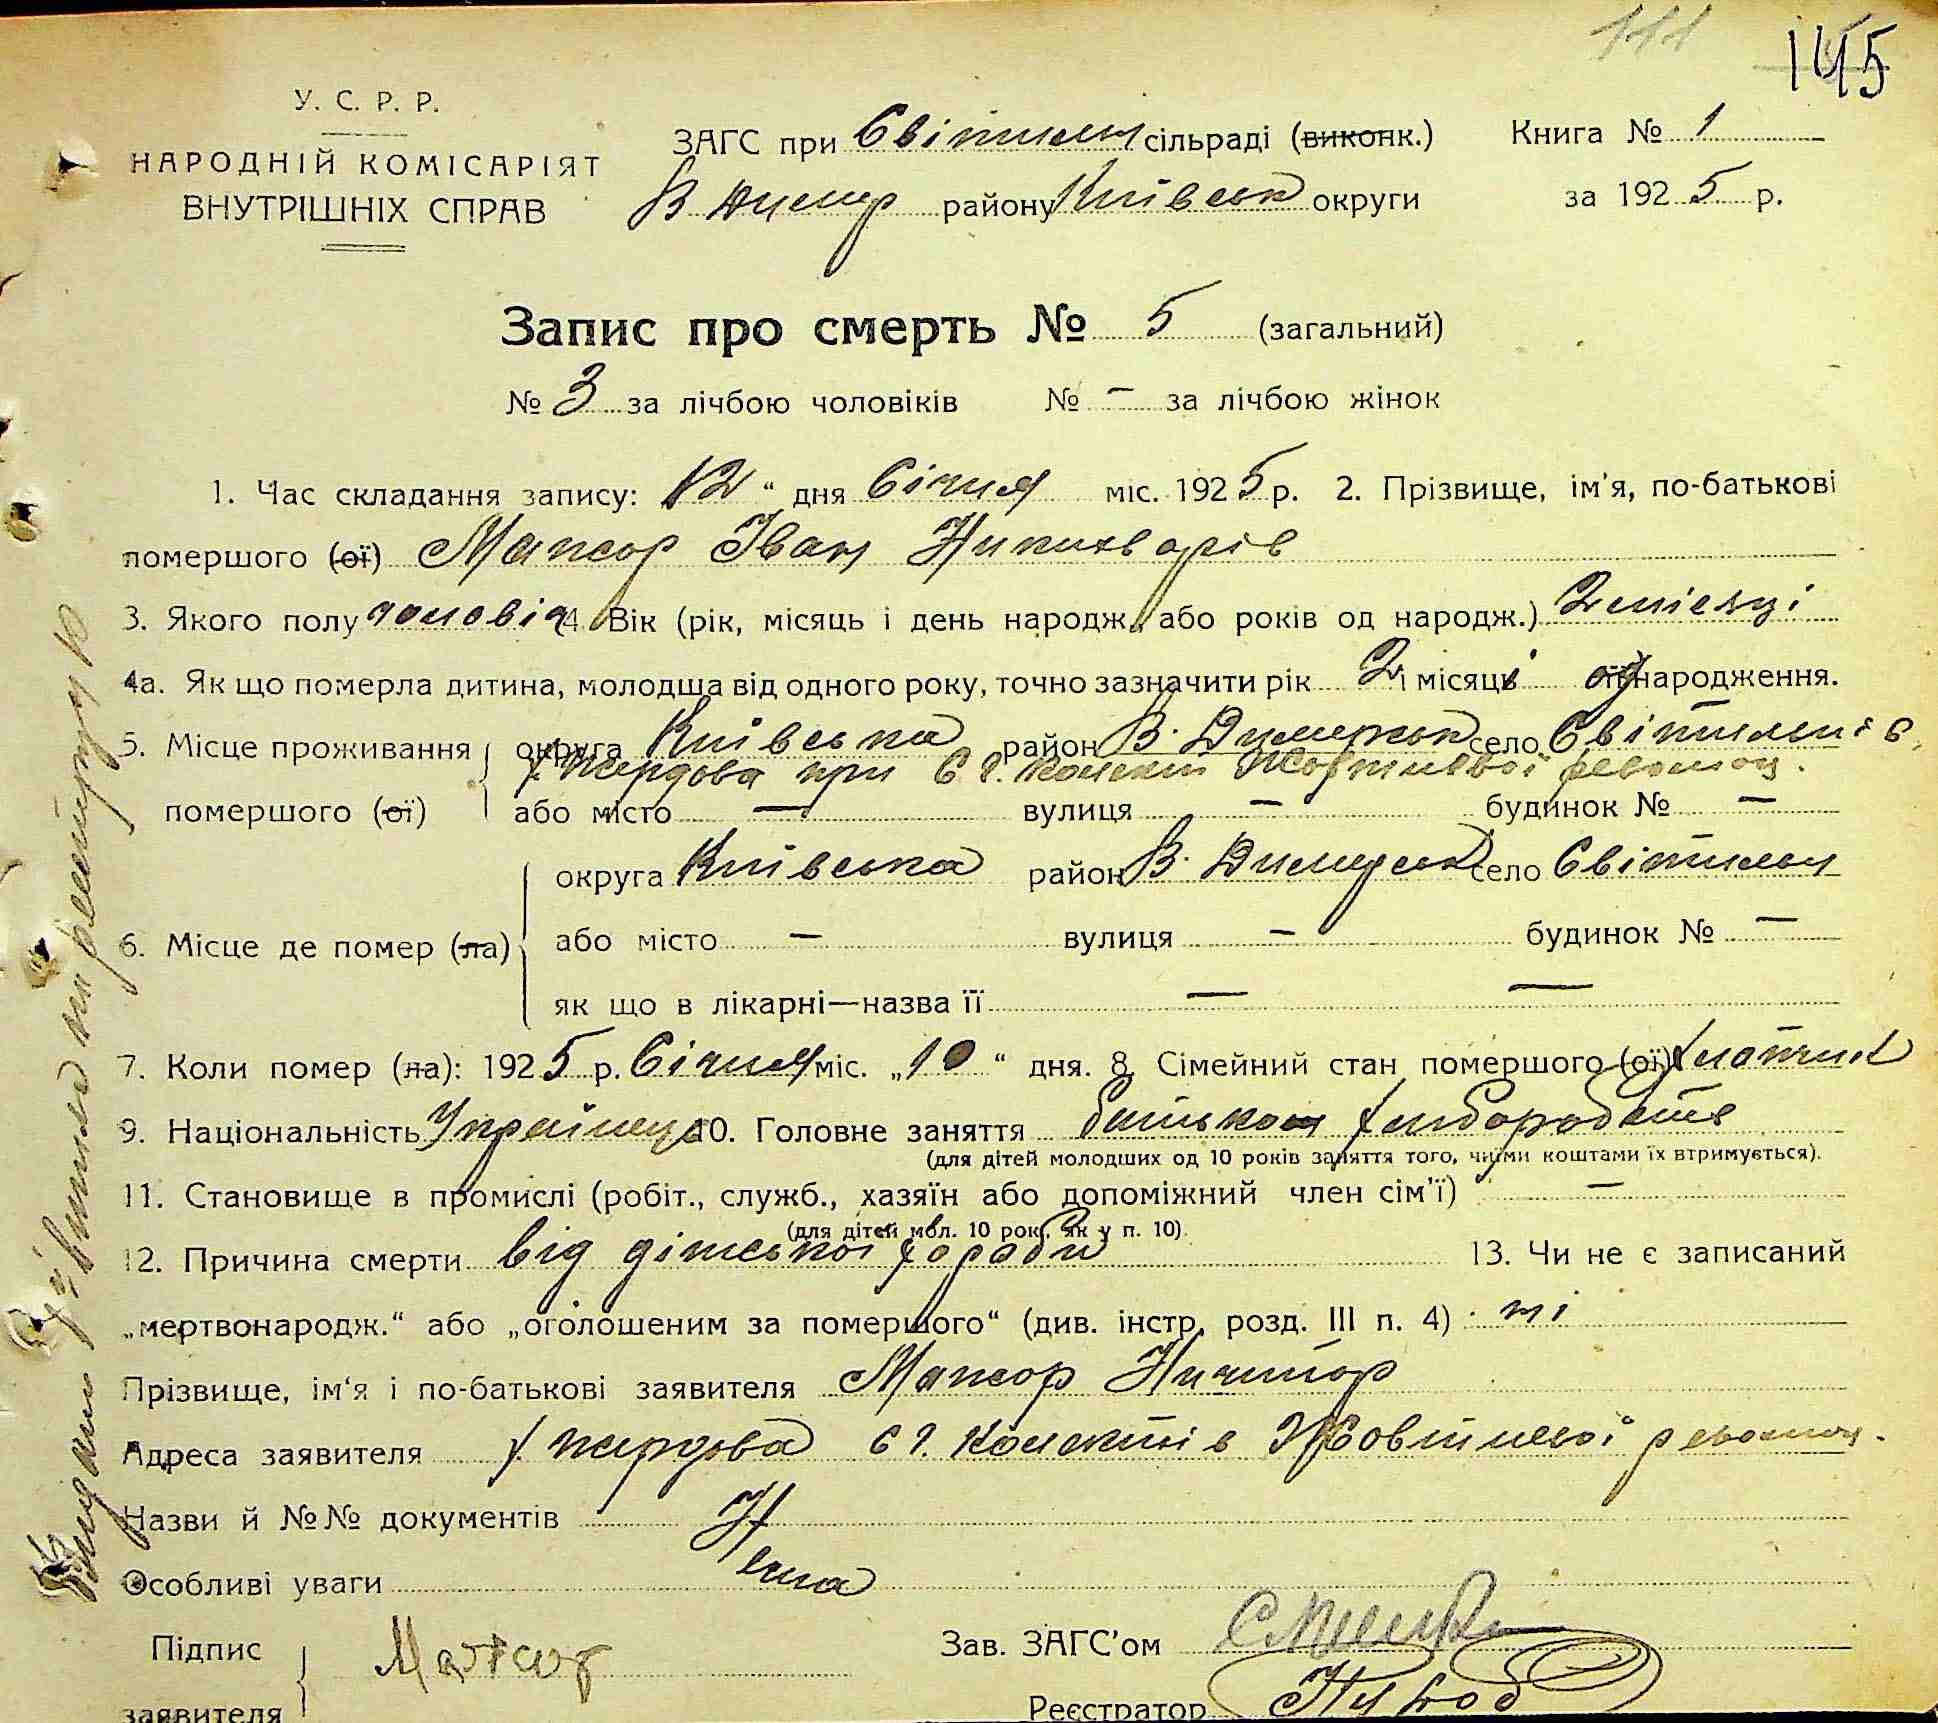 111
145
У. С. Р. Р.
НАРОДНІЙ КОМІСАРІЯТ
ВНУТРІШНІХ СПРАВ
ЗАГС при Світильн сільраді (виконк.) Книга № 1
В Димер району Київськ округи за 1925 р.
Запис про смерть № 5 (загальний)
№ 3 за лічбою чоловіків № — за лічбою жінок
1. Час складання запису: 12 “ дня Січня міс. 1925 р. 2. Прізвище, ім'я, по-батькові
помершого (ої) Мажор Іван
3. Якого полу чоловіч 4. Вік (рік, місяць і день народж. або років од народж.) 2 місяці
4а. Як що померла дитина, молодша від одного року, точно зазначити рік 2 і місяць од народження.
5. Місце проживання округа Київська район В. Димерськ село Світильнів
при с г. Жовтневої революц.
помершого (ої) або місто — вулиця — будинок № —
округа Київська район В. Димерськ село Світильн
6. Місце де помер (ла) або місто — вулиця — будинок № —
як що в лікарні—назва її — —
7. Коли помер (ла): 1925 р. Січня міс. „10 “ дня. 8. Сімейний стан помершого (ої)
9. Національність Українець 10. Головне заняття батьков хліборобств
(для дітей молодших од 10 років заняття того, чиїми коштами їх втримується).
11. Становище в промислі (робіт., служб., хазяїн або допоміжний член сім'ї) —
(для дітей мол. 10 рок. як у п. 10).
12. Причина смерти від дітської хороби 13. Чи не є записаний
„мертвонародж.“ або „оголошеним за помершого“ (див. інстр. розд. III п. 4) ні
Прізвище, ім'я і по-батькові заявителя Мажор Ничипор
Адреса заявителя с г. колектив Жовтневої революц.
Назви й №№ документів Нема
Особливі уваги
Підпис заявителя Мажор
Зав. ЗАГС'ом
Реєстратор